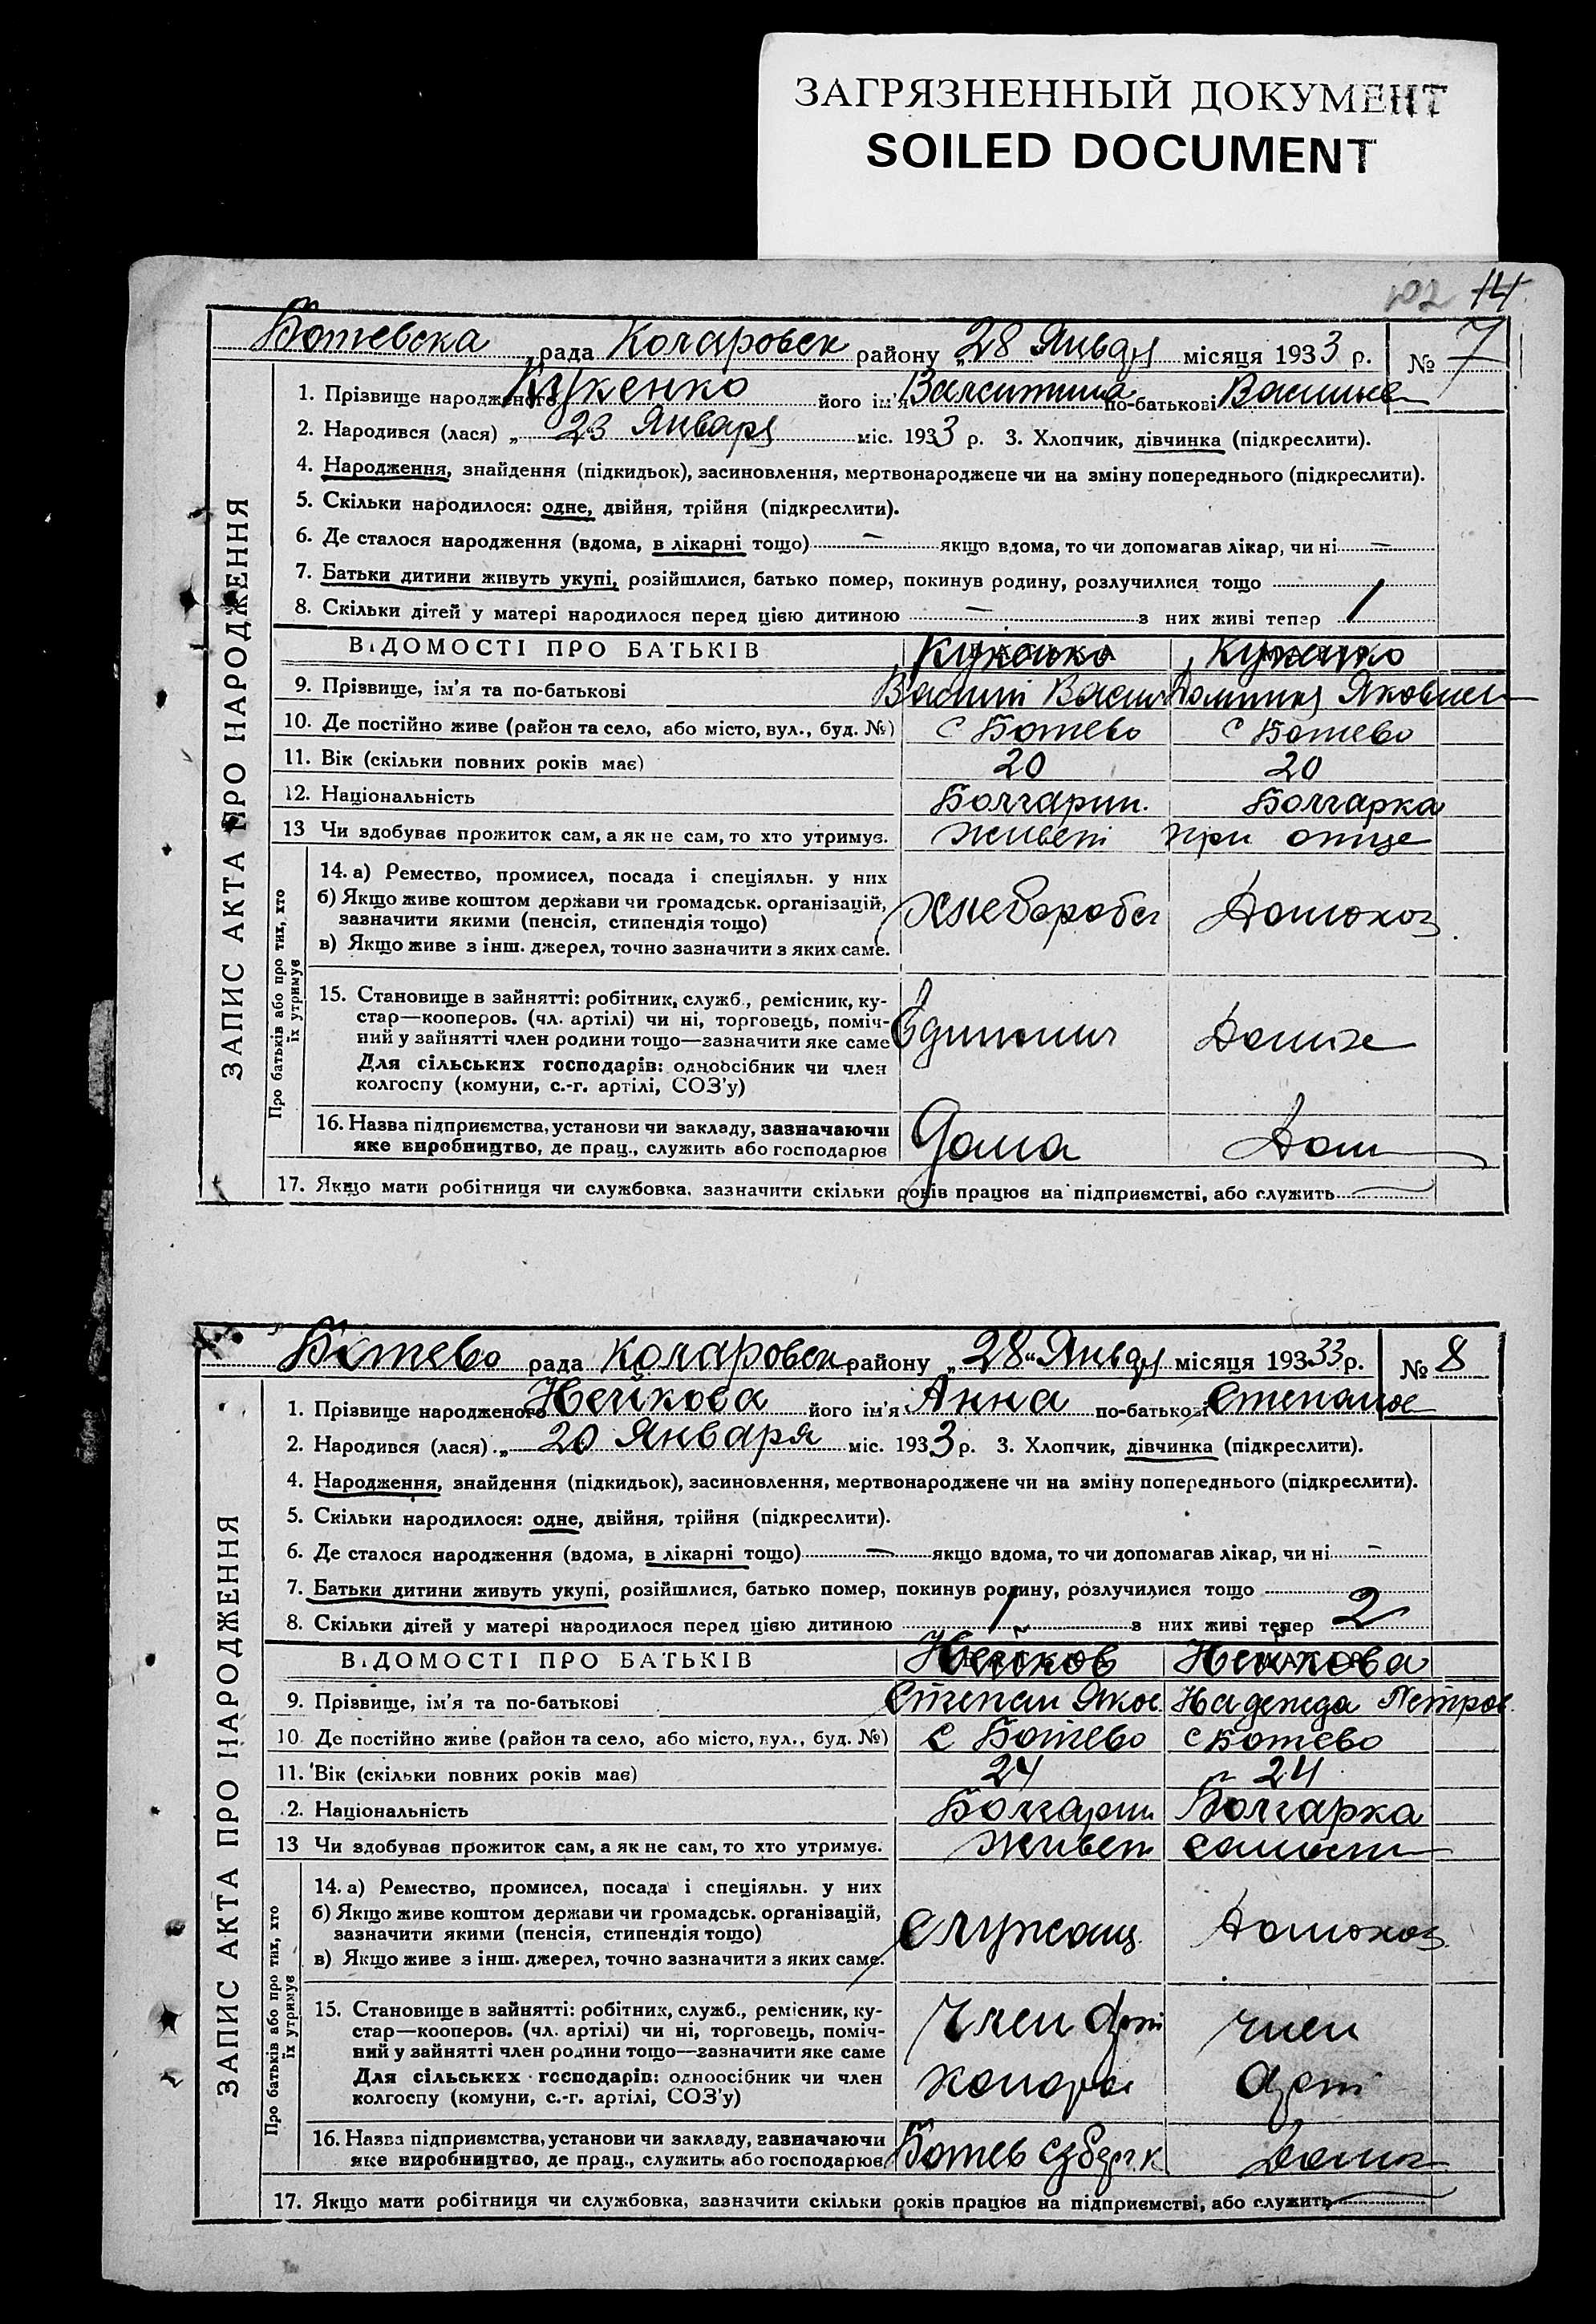 ЗАГРЯЗНЕННЫЙ ДОКУМЕНТ
SOILED DOCUMENT
102 14
Ботевска рада Коларовск району „28 Январ місяця 1933 р. № 7
1. Прізвище народженого Куженко його ім'я Валентина по-батькові Василье
2. Народився (лася) „ 23 Января міс. 1933 р. 3. Хлопчик, дівчинка (підкреслити).
4. Народження, знайдення (підкидьок), засиновлення, мертвонароджене чи на зміну попереднього (підкреслити).
5. Скільки народилося: одне, двійня, трійня (підкреслити).
6. Де сталося народження (вдома, в лікарні тощо) — якщо вдома, то чи допомагав лікар, чи ні —
7. Батьки дитини живуть укупі, розійшлися, батько помер, покинув родину, розлучилися тощо
8. Скільки дітей у матері народилося перед цією дитиною — з них живі тепер 1
ВІДОМОСТІ ПРО БАТЬКІВ Куженко Куженко
9. Прізвище, ім'я та по-батькові Василі Васил Яковлев
10. Де постійно живе (район та село, або місто, вул., буд. №) с Ботево с Ботево
11. Вік (скільки повних років має) 20 20
12. Національність Болгарин. Болгарка
13 Чи здобував прожиток сам, а як не сам, то хто утримує. живет при отце
14. а) Ремество, промисел, посада і спеціяльн. у них
б) Якщо живе коштом держави чи громадськ. організацій,
зазначити якими (пенсія, стипендія тощо) хлебороб Домохоз
в) Якщо живе з інш. джерел, точно зазначити з яких саме.
15. Становище в зайнятті: робітник, служб., ремісник, ку-
стар—кооперов. (чл. артілі) чи ні, торговець, поміч-
ний у зайнятті член родини тощо—зазначити яке саме Единолич
Для сільських господарів: одноосібник чи член
колгоспу (комуни, с.-г. артілі, СОЗ'у)
16. Назва підприємства, установи чи закладу, зазначаючи
яке виробництво, де прац., служить або господарює дома Дом
17. Якщо мати робітниця чи службовка, зазначити скільки років працює на підприємстві, або служить
ЗАПИС АКТА ПРО НАРОДЖЕННЯ
Про батьків або про тих, хто
їх утримує
Ботево рада Коларовск району „28 „Январ місяця 19333 р. № 8
1. Прізвище народженого Нейкова його ім'я Анна по-батькові Степанов
2. Народився (лася) „ 20 Января міс. 1933 р. 3. Хлопчик, дівчинка (підкреслити).
4. Народження, знайдення (підкидьок), засиновлення, мертвонароджене чи на зміну попереднього (підкреслити).
5. Скільки народилося: одне, двійня, трійня (підкреслити).
6. Де сталося народження (вдома, в лікарні тощо) — якщо вдома, то чи допомагав лікар, чи ні —
7. Батьки дитини живуть укупі, розійшлися, батько помер, покинув родину, розлучилися тощо
8. Скільки дітей у матері народилося перед цією дитиною 1 з них живі тепер 2
ВІДОМОСТІ ПРО БАТЬКІВ Нейков Нейкова
9. Прізвище, ім'я та по-батькові Степан Яков Надежда Петров
10. Де постійно живе (район та село, або місто, вул., буд. №) с Ботево с Ботево
11. Вік (скільки повних років має) 24 24
12. Національність Болгарин Болгарка
13 Чи здобував прожиток сам, а як не сам, то хто утримує. живет самост
14. а) Ремество, промисел, посада і спеціяльн. у них
б) Якщо живе коштом держави чи громадськ. організацій,
зазначити якими (пенсія, стипендія тощо) служащ Домохоз
в) Якщо живе з інш. джерел, точно зазначити з яких саме.
15. Становище в зайнятті: робітник, служб., ремісник, ку- Член арт член
стар—кооперов. (чл. артілі) чи ні, торговець, поміч-
ний у зайнятті член родини тощо—зазначити яке саме
Для сільських господарів: одноосібник чи член арт
колгоспу (комуни, с.-г. артілі, СОЗ'у)
16. Назва підприємства, установи чи закладу, зазначаючи
яке виробництво, де прац., служить або господарює Ботев
17. Якщо мати робітниця чи службовка, зазначити скільки років працює на підприємстві, або служить
ЗАПИС АКТА ПРО НАРОДЖЕННЯ
Про батьків або про тих, хто
їх утримує